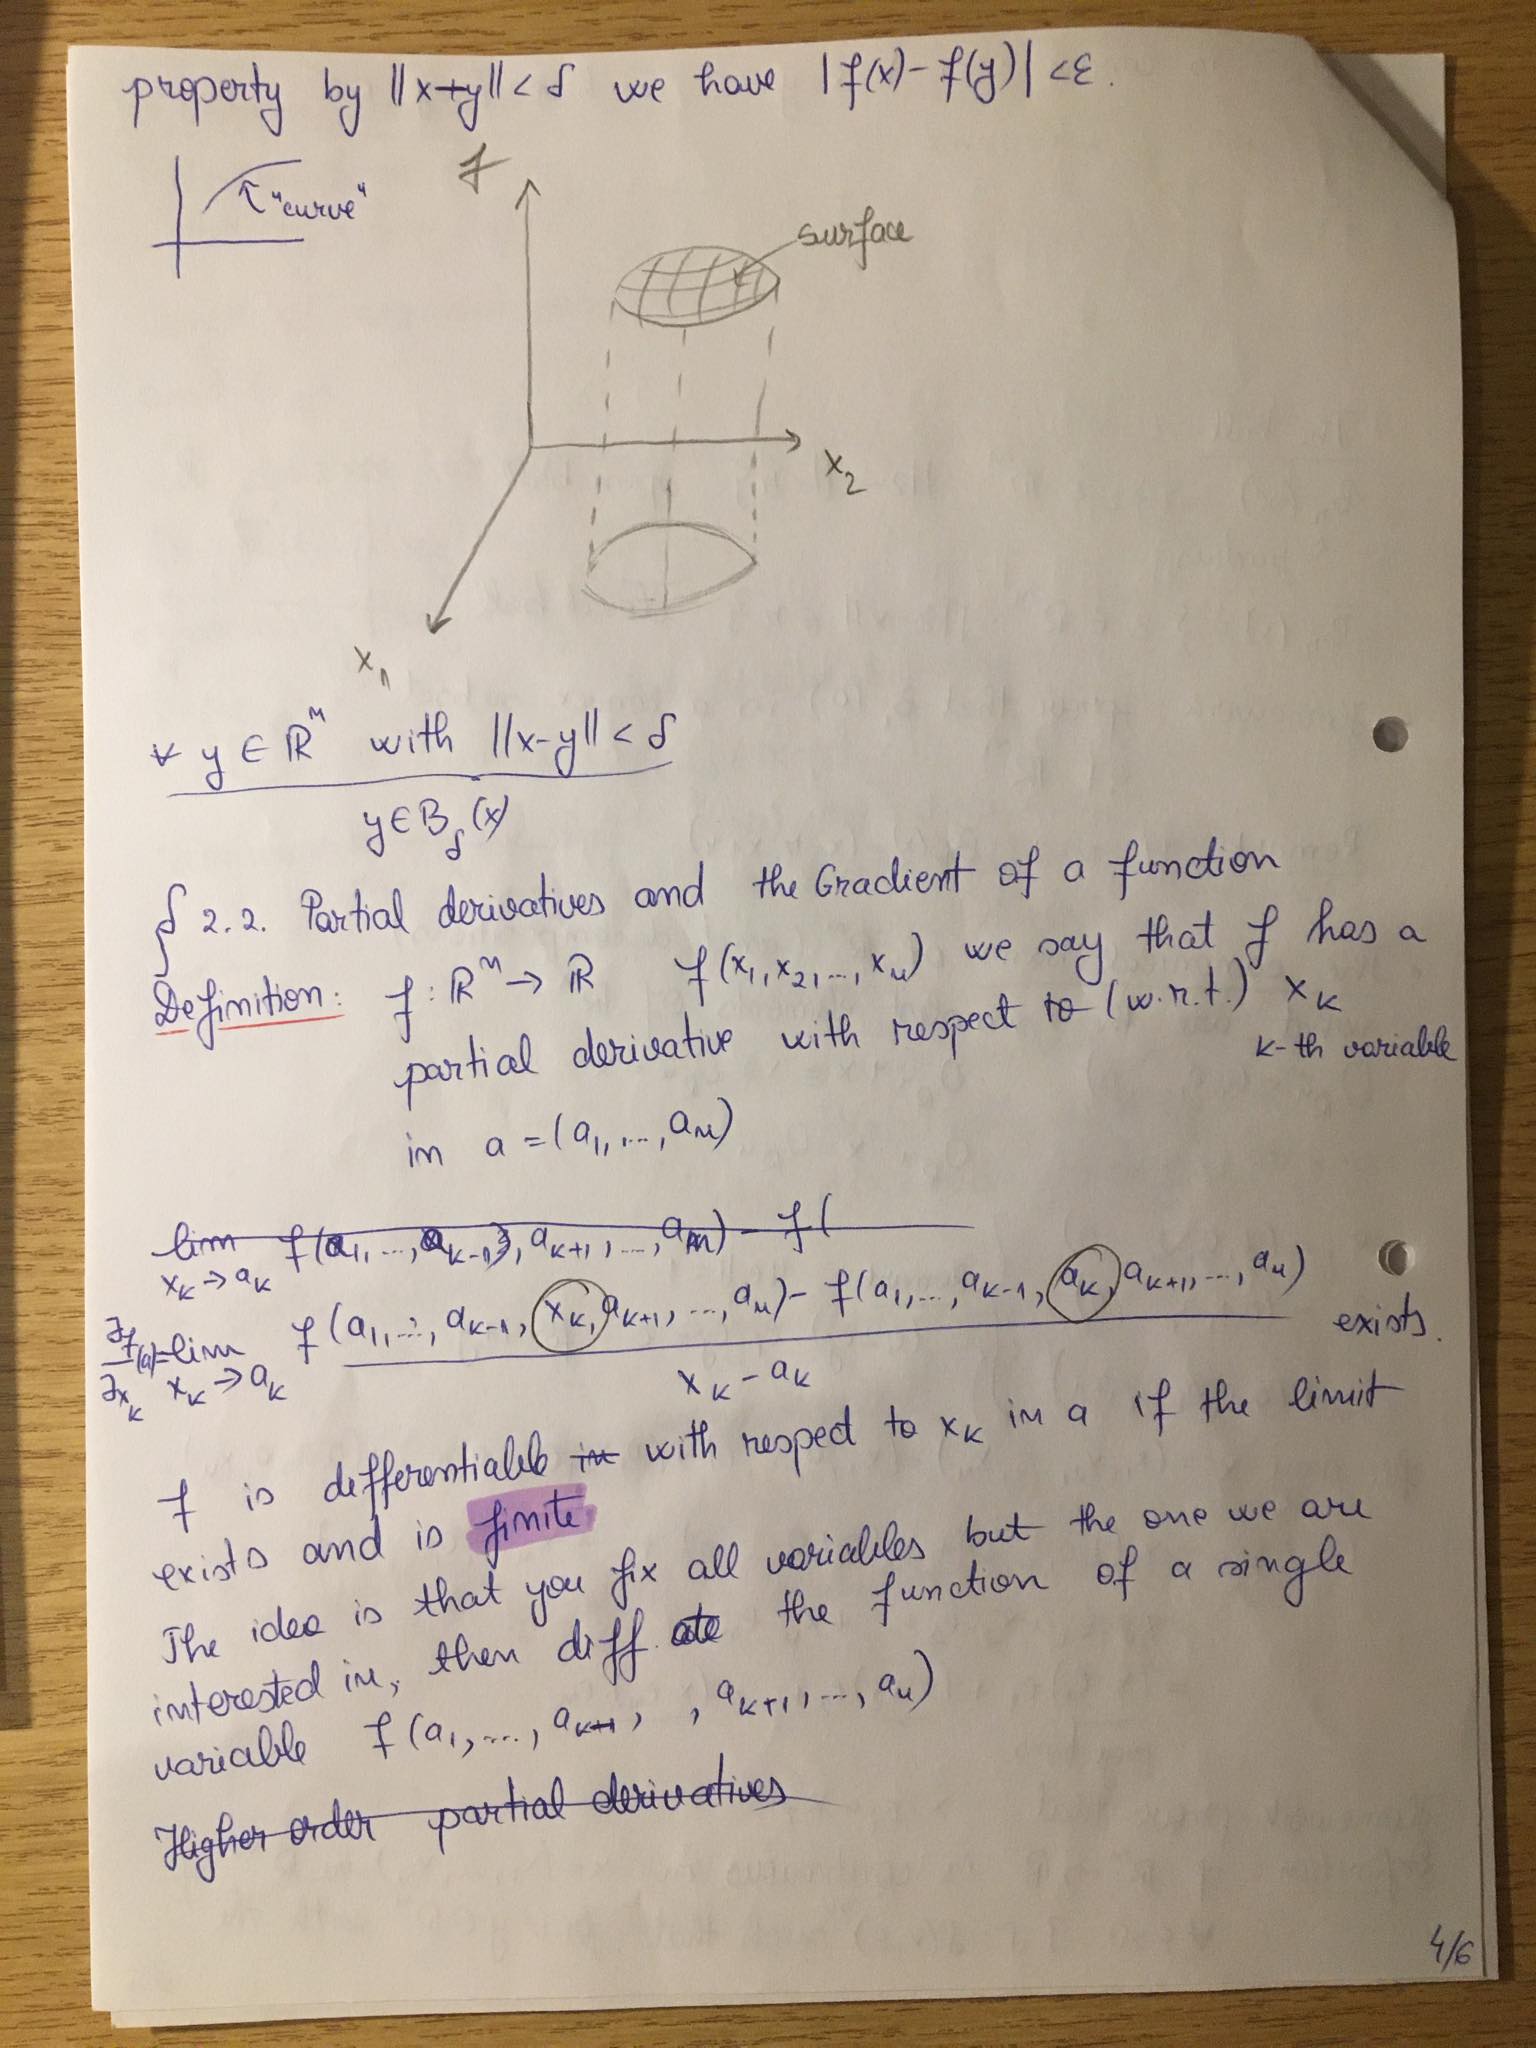 property by ||x+y|| < δ we have |f(x)-f(y)| < ε.
"curve"
f
surface
x₂
x₁
∀ y ∈ ℝⁿ with ||x-y|| < δ
y ∈ B_δ(x)
§ 2.2. Partial derivatives and the Gradient of a function
Definition: f: ℝⁿ → ℝ f(x₁, x₂, ..., xₙ) we say that f has a
partial derivative with respect to (w.r.t.) x_k
k-th variable
in a = (a₁, ..., aₙ)
lim f(a₁, ..., a_{k-1}, a_{k+1}, ..., aₙ) - f(
x_k → a_k
∂f/∂x_k (a) = lim_{x_k → a_k} (f(a₁, ..., a_{k-1}, x_k, a_{k+1}, ..., aₙ) - f(a₁, ..., a_{k-1}, a_k, a_{k+1}, ..., aₙ)) / (x_k - a_k) exists.
f is differentiable in with respect to x_k in a if the limit
exists and is finite
The idea is that you fix all variables but the one we are
interested in, then diff. the function of a single
variable f(a₁, ..., a_{k-1}, , a_{k+1}, ..., aₙ)
Higher order partial derivatives
4/6